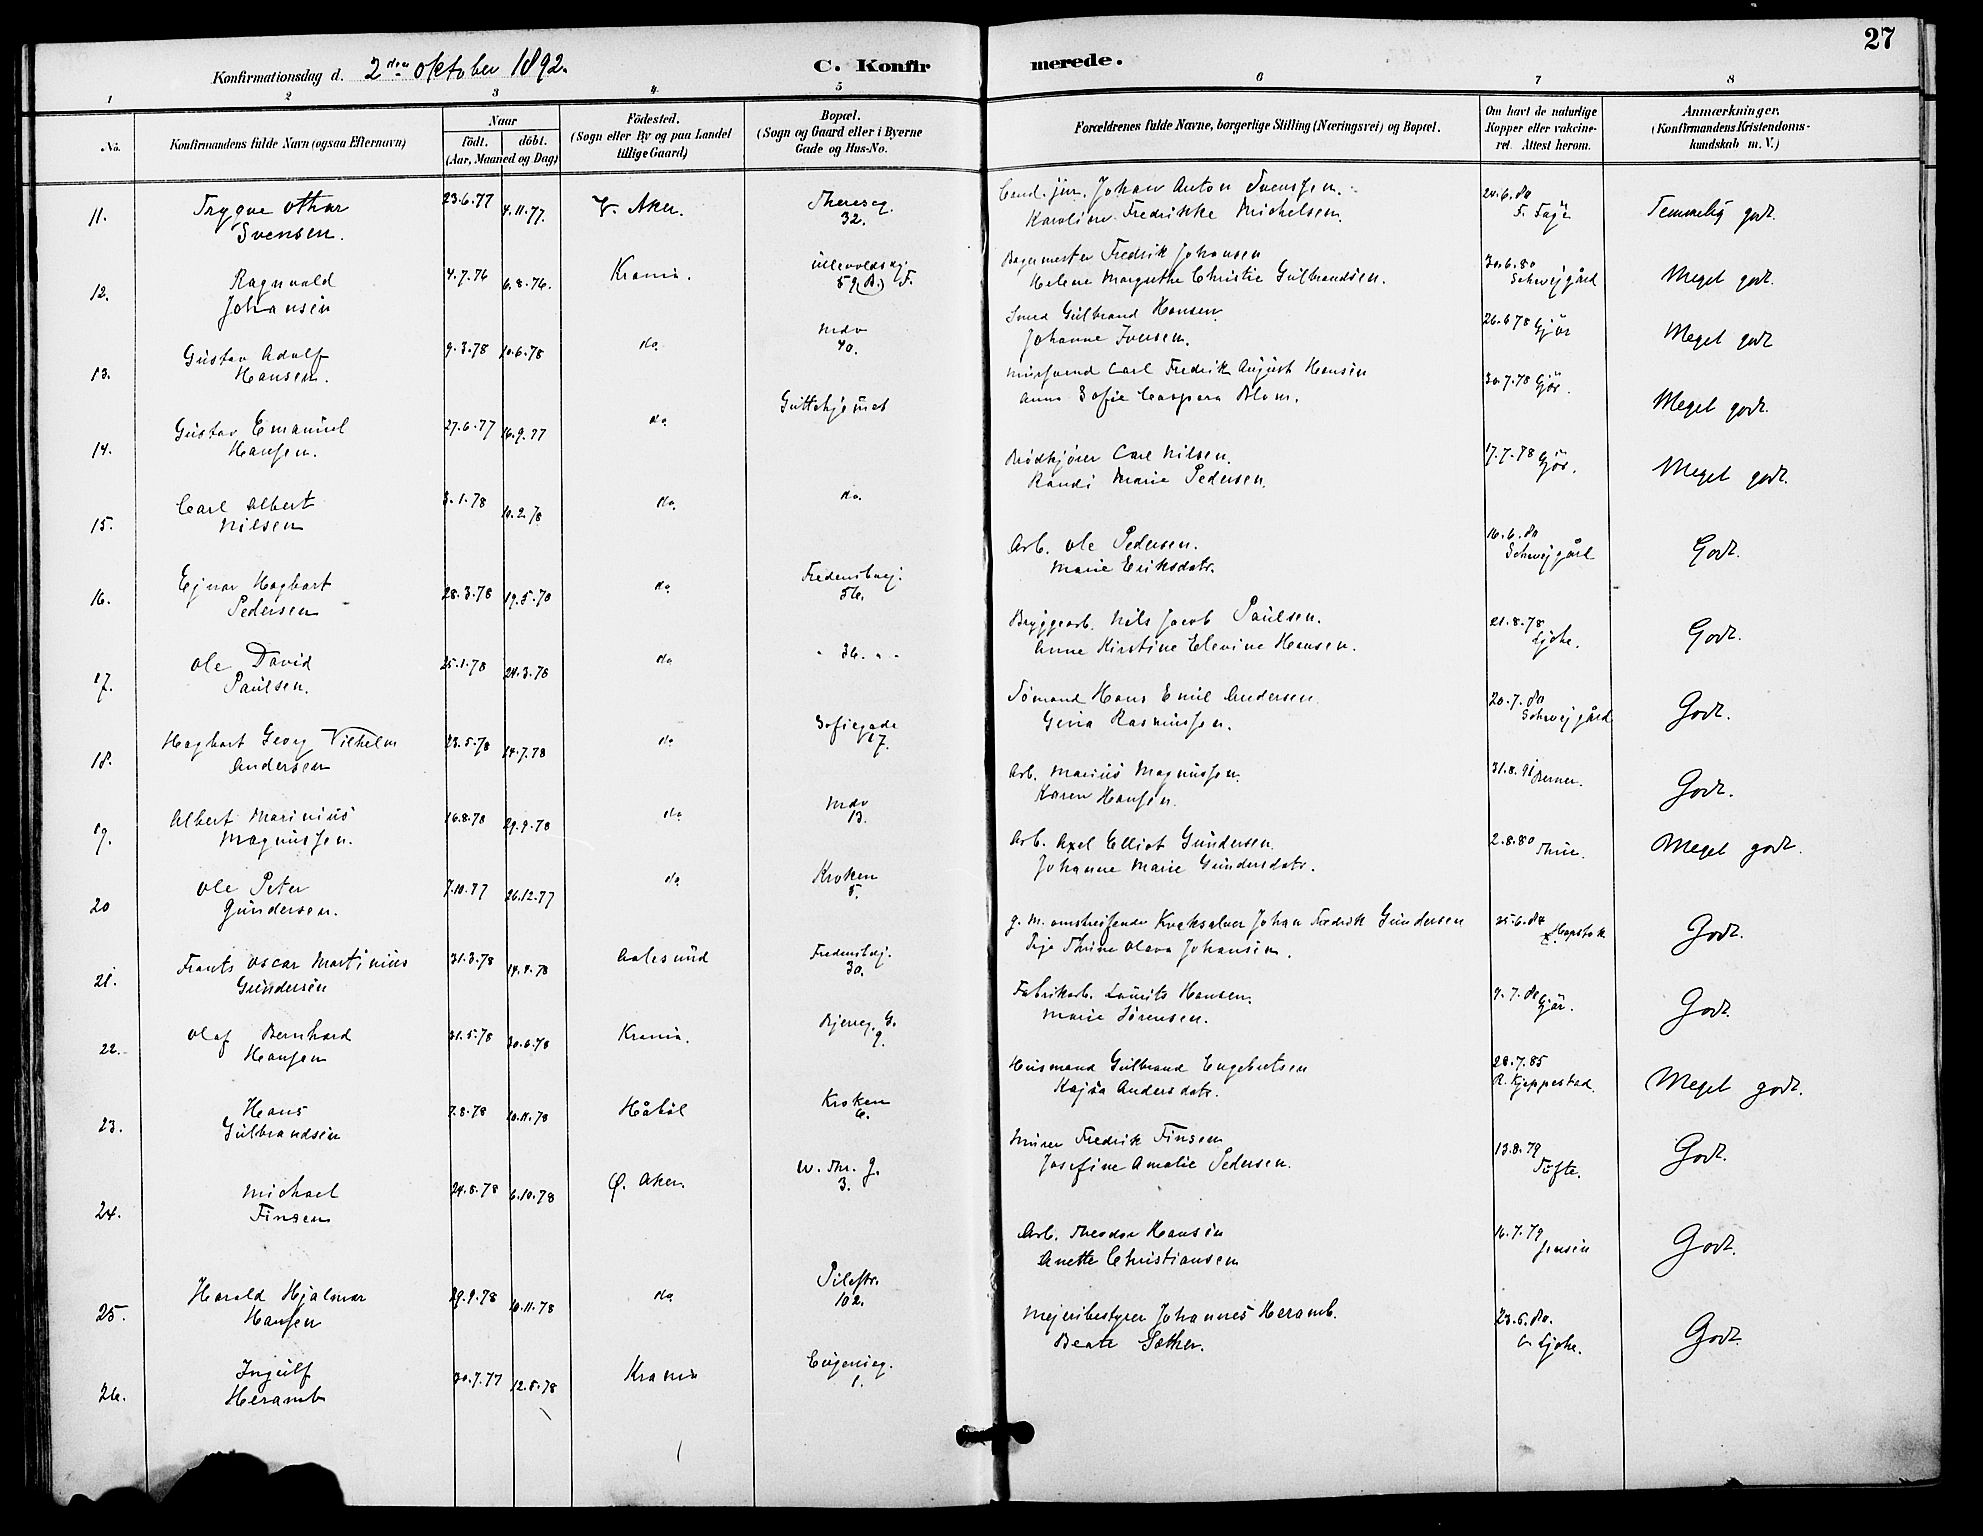 27
Konfirmationsdag d. 2den oktober 1892.
C. Konfirmerede.
1 2 3 4 5 6 7 8
No.
Konfirmandens fulde Navn (ogsaa Efternavn)
Naar
födt. döbt.
(Aar, Maaned og Dag)
Födested.
(Sogn eller By og paa Landet
tillige Gaard)
Bopæl.
(Sogn og Gaard eller i Byerne
Gade og Hus-No.
Forældrenes fulde Navne, borgerlige Stilling (Næringsvei) og Bopæl.
Om havt de naturlige
Kopper eller vakcine-
ret. Attest herom.
Anmærkninger.
(Konfirmandens Kristendoms-
kundskab m. V.)
11. Trygve Othar 23.6.77 4.11.77. V. Aker. Thereseg.
Svensen. 32.
Cand. jur. Johan Anton Svenssen. 20.6.80
Karoline Fredrikke Michelsen. Temmelig godt.
12. Ragnvald 4.7.76 6.8.76. Krania. Ullevoldsvej.
Johansen 59 (B.) F.
Bagermester Fredrik Johansen 30.6.80
Helene Margrethe Christie Gulbrandsen. Schwejgård Meget godt.
13. Gustav Adolf 9.3.78 10.6.78 do. Mdv
Hansen. 40.
Smed Gulbrand Hansen. 26.6 78 Gjör
Johanne Iversen. Meget godt
14. Gustav Emanuel 27.6.77 16.9.77 do. Guttehjemet
Hansen.
Mursvend Carl Fredrik August Hansen 30.7.78 Gjör.
Anna Sofie Caspara Blom. Meget godt.
15. Carl Albert 3.1.78 10.2.78 do. do.
Nilsen
Brödkjörer Carl Nilsen. 17.7.78 Gjör.
Randi Marie Pedersen. Meget godt.
16. Ejnar Hagbart 28.3.78 19.5.78 do. Fredensbvej.
Pedersen 56.
Arb. Ole Pedersen. 16.6.80
Marie Eriksdatr. Schwejgård Godt.
17. Ole David 25.1.78 24.3.78 do. " 36. " "
Paulsen.
Bryggearb. Nils Jacob Paulsen. 21.8.78
Anne Kirstine Elevine Hansen. Ljche. Godt.
18. Hagbart Georg Vilhelm 23.5.78 14.7.78 do. Sofiegade
Andersen 17.
Sömand Hans Emil Andersen 20.7.80
Gina Rasmussen. Schwejgård Godt.
19. Albert Marinius 16.8.78 29.9.78 do. Mdv
Magnussen. 13.
Arb. Marius Magnussen. 31.8.91 Berner.
Karen Hansen. Godt.
20 Ole Peter 7.10.77 26.12.77 do. Kroken
Gundersen. 5.
Arb. Axel Elliot Gundersen. 2.8.80 Thue.
Johanne Marie Gundersdatr. Meget godt.
21. Frants Oscar Martinius 31.3.78 14.4.78 Aalesund Fredensbvej.
Gundersen 30.
g. M. omstreifende Kvaksalver Johan Fredrik Gundersen 25.6.84
Pige Thrine Olava Johansen. Hopstok Godt.
22. Olaf Bernhard 31.5.78 30.6.78 Krania. Bjerreg. G.
Hansen 9.
Fabrikarb. Laurits Hansen. 7.7.80 Gjör.
Marie Sörensen. Godt.
23. Hans 7.8.78 10.11.78 Håböl Kroken
Gulbrandsen 6.
Husmand Gulbrand Engebretsen 28.7.85
Kajsa Andersdatr. R. Kjeppestad Meget godt.
24. Michael 24.8.78 6.10.78 Ø. Aker. W. Thr. g.
Finsen 3.
Murer Fredrik Finsen 13.8.79
Josefine Amalie Pedersen. Tufte. Godt.
25. Harald Hjalmar 29.9.78 10.11.78 do. Pilestr.
Hansen 102.
Arb. Theodor Hansen 16.7.79
Anette Christiansen Jensen Godt.
26. Ingulf 30.7.77 12.5.78 Krania Eugenieg.
Heramb 1.
Mejeribestyrer Johannes Heramb. 23.6.80.
Beate Sæther. Ljche. Godt.